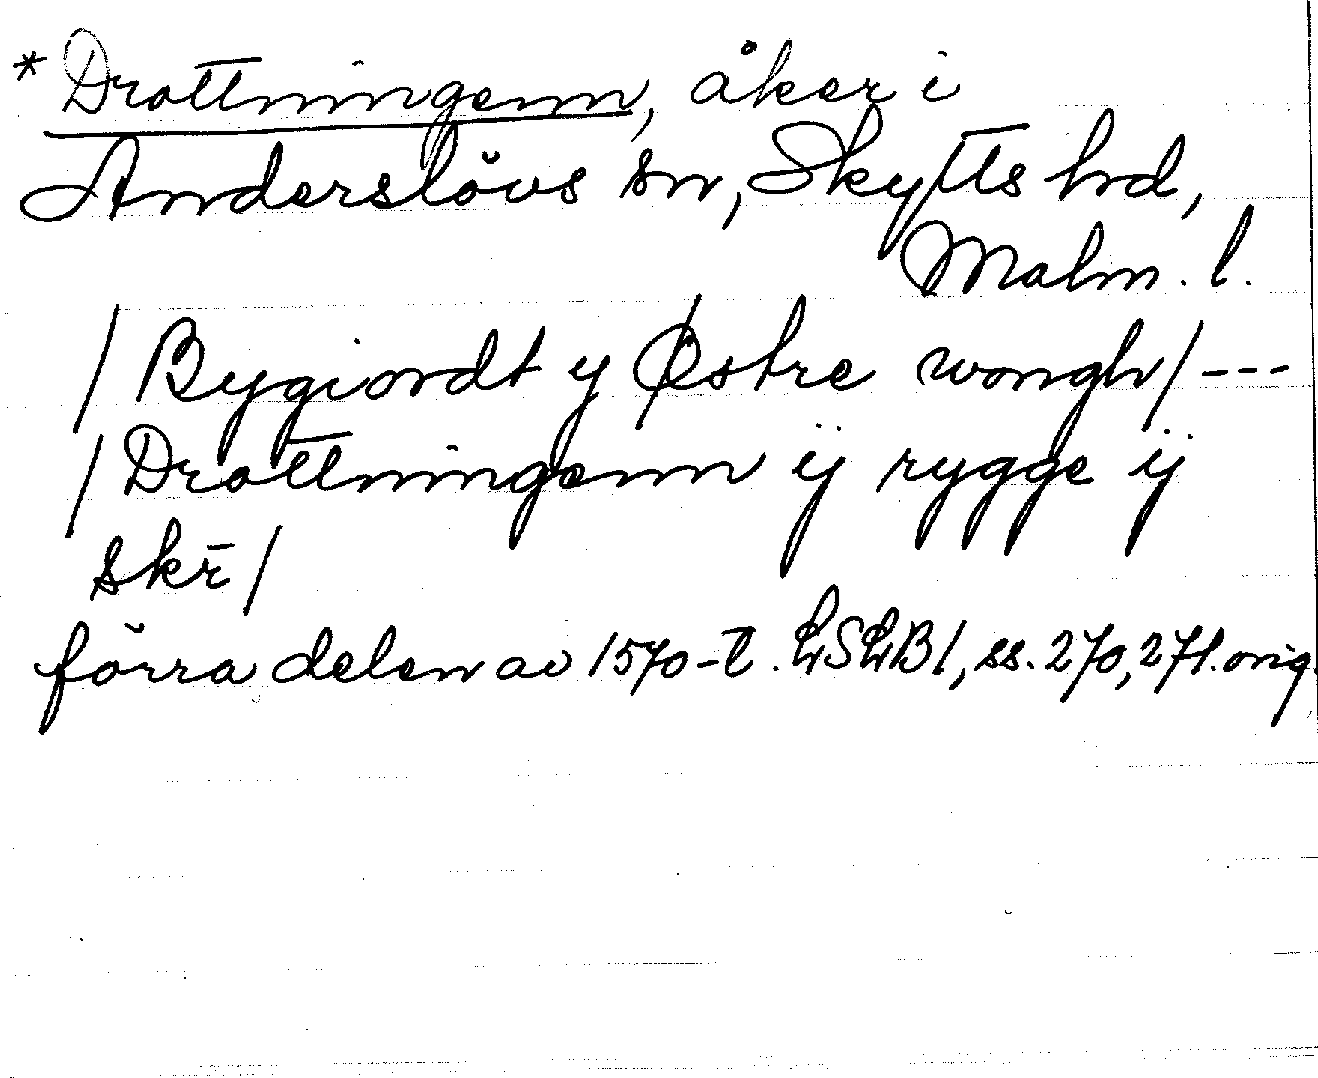 *Drottningenn, åker i
Anderslövs sn, Skytts hd,
Malm. l.
/Bygiordt y Østre wongh/---
/Drottningenn ÿ rygge ÿ
skr̄/
förra delen av 1570-t. LSLB1, ss. 270, 271. orig.